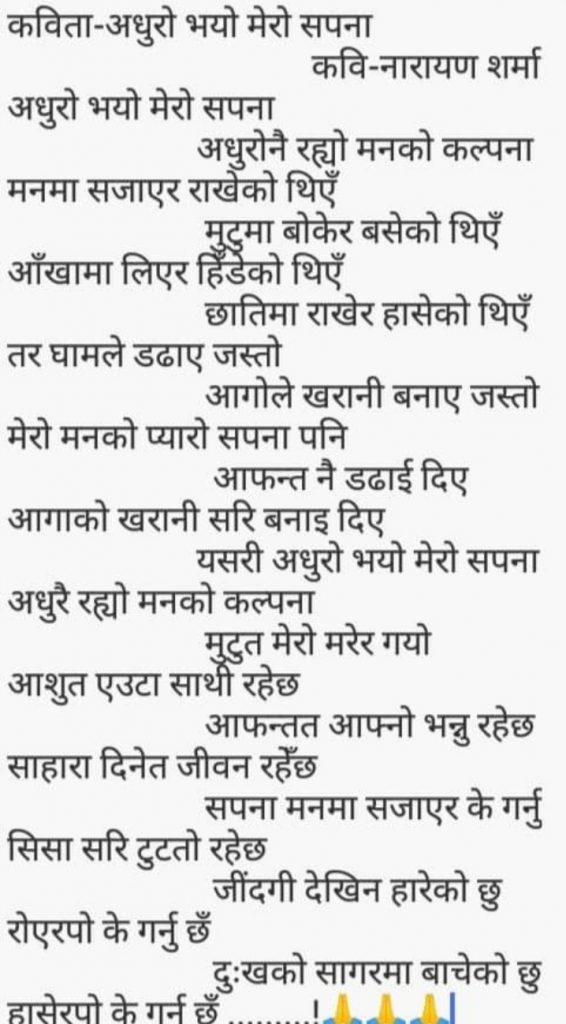 कविता-अधुरो भयो मेरो सपना
कवि-नारायण शर्मा
अधुरो भयो मेरो सपना
अधुरोनै रह्यो मनको कल्पना
मनमा सजाएर राखेको थिएँ
मुटुमा बोकेर बसेको थिएँ
आँखामा लिएर हिँडेको थिएँ
छातिमा राखेर हासेको थिएँ
तर घामले डढाए जस्तो
आगोले खरानी बनाए जस्तो
मेरो मनको प्यारो सपना पनि
आफन्त नै डढाई दिए
आगाको खरानी सरि बनाइ दिए
यसरी अधुरो भयो मेरो सपना
अधुरै रह्यो मनको कल्पना
मुटुत मेरो मरेर गयो
आशुत एउटा साथी रहेछ
आफन्तत आफ्नो भन्नु रहेछ
साहारा दिनेत जीवन रहेँछ
सपना मनमा सजाएर के गर्नु
सिसा सरि टुटतो रहेछ
जींदगी देखिन हारेको छु
रोएरपो के गर्नु छँ
दुःखको सागरमा बाचेको छु
हासेरपो के गर्नु छँ ..........!🙏🙏🙏